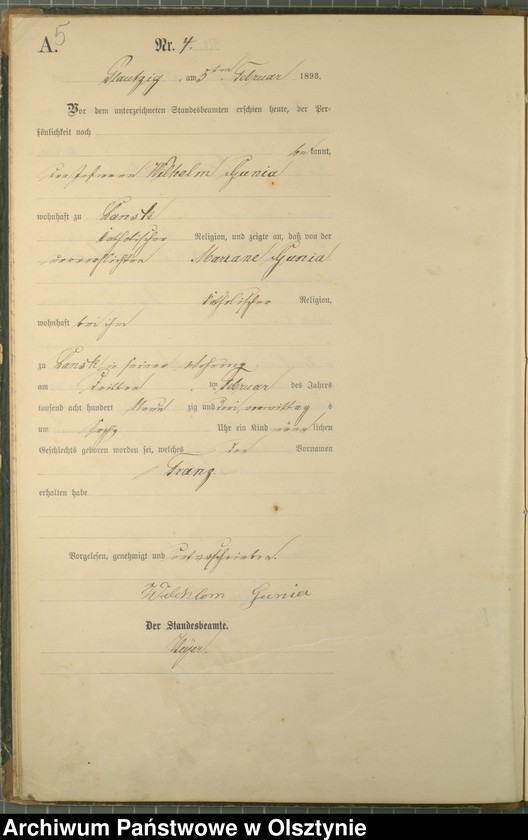 A. 5
Nr. 4.
Plautzig am 5ten Februar 1893.
Vor dem unterzeichneten Standesbeamten erschien heute, der Per-
sönlichkeit nach
bekannt,
Wilhelm Gunia
wohnhaft zu Lansk
katholischer Religion, und zeigte an, daß von der
unverehelichten Mariane Gunia
katholischer Religion,
wohnhaft bei ihm
zu Lansk in seiner Wohnung
am dritten ten Februar des Jahres
tausend acht hundert neun zig und drei vormittags
um sechs Uhr ein Kind männlichen
Geschlechts geboren worden sei, welches den Vornamen
Franz
erhalten habe
Vorgelesen, genehmigt und unterschrieben.
Wilhlom Gunia
Der Standesbeamte.
Archiwum Państwowe w Olsztynie